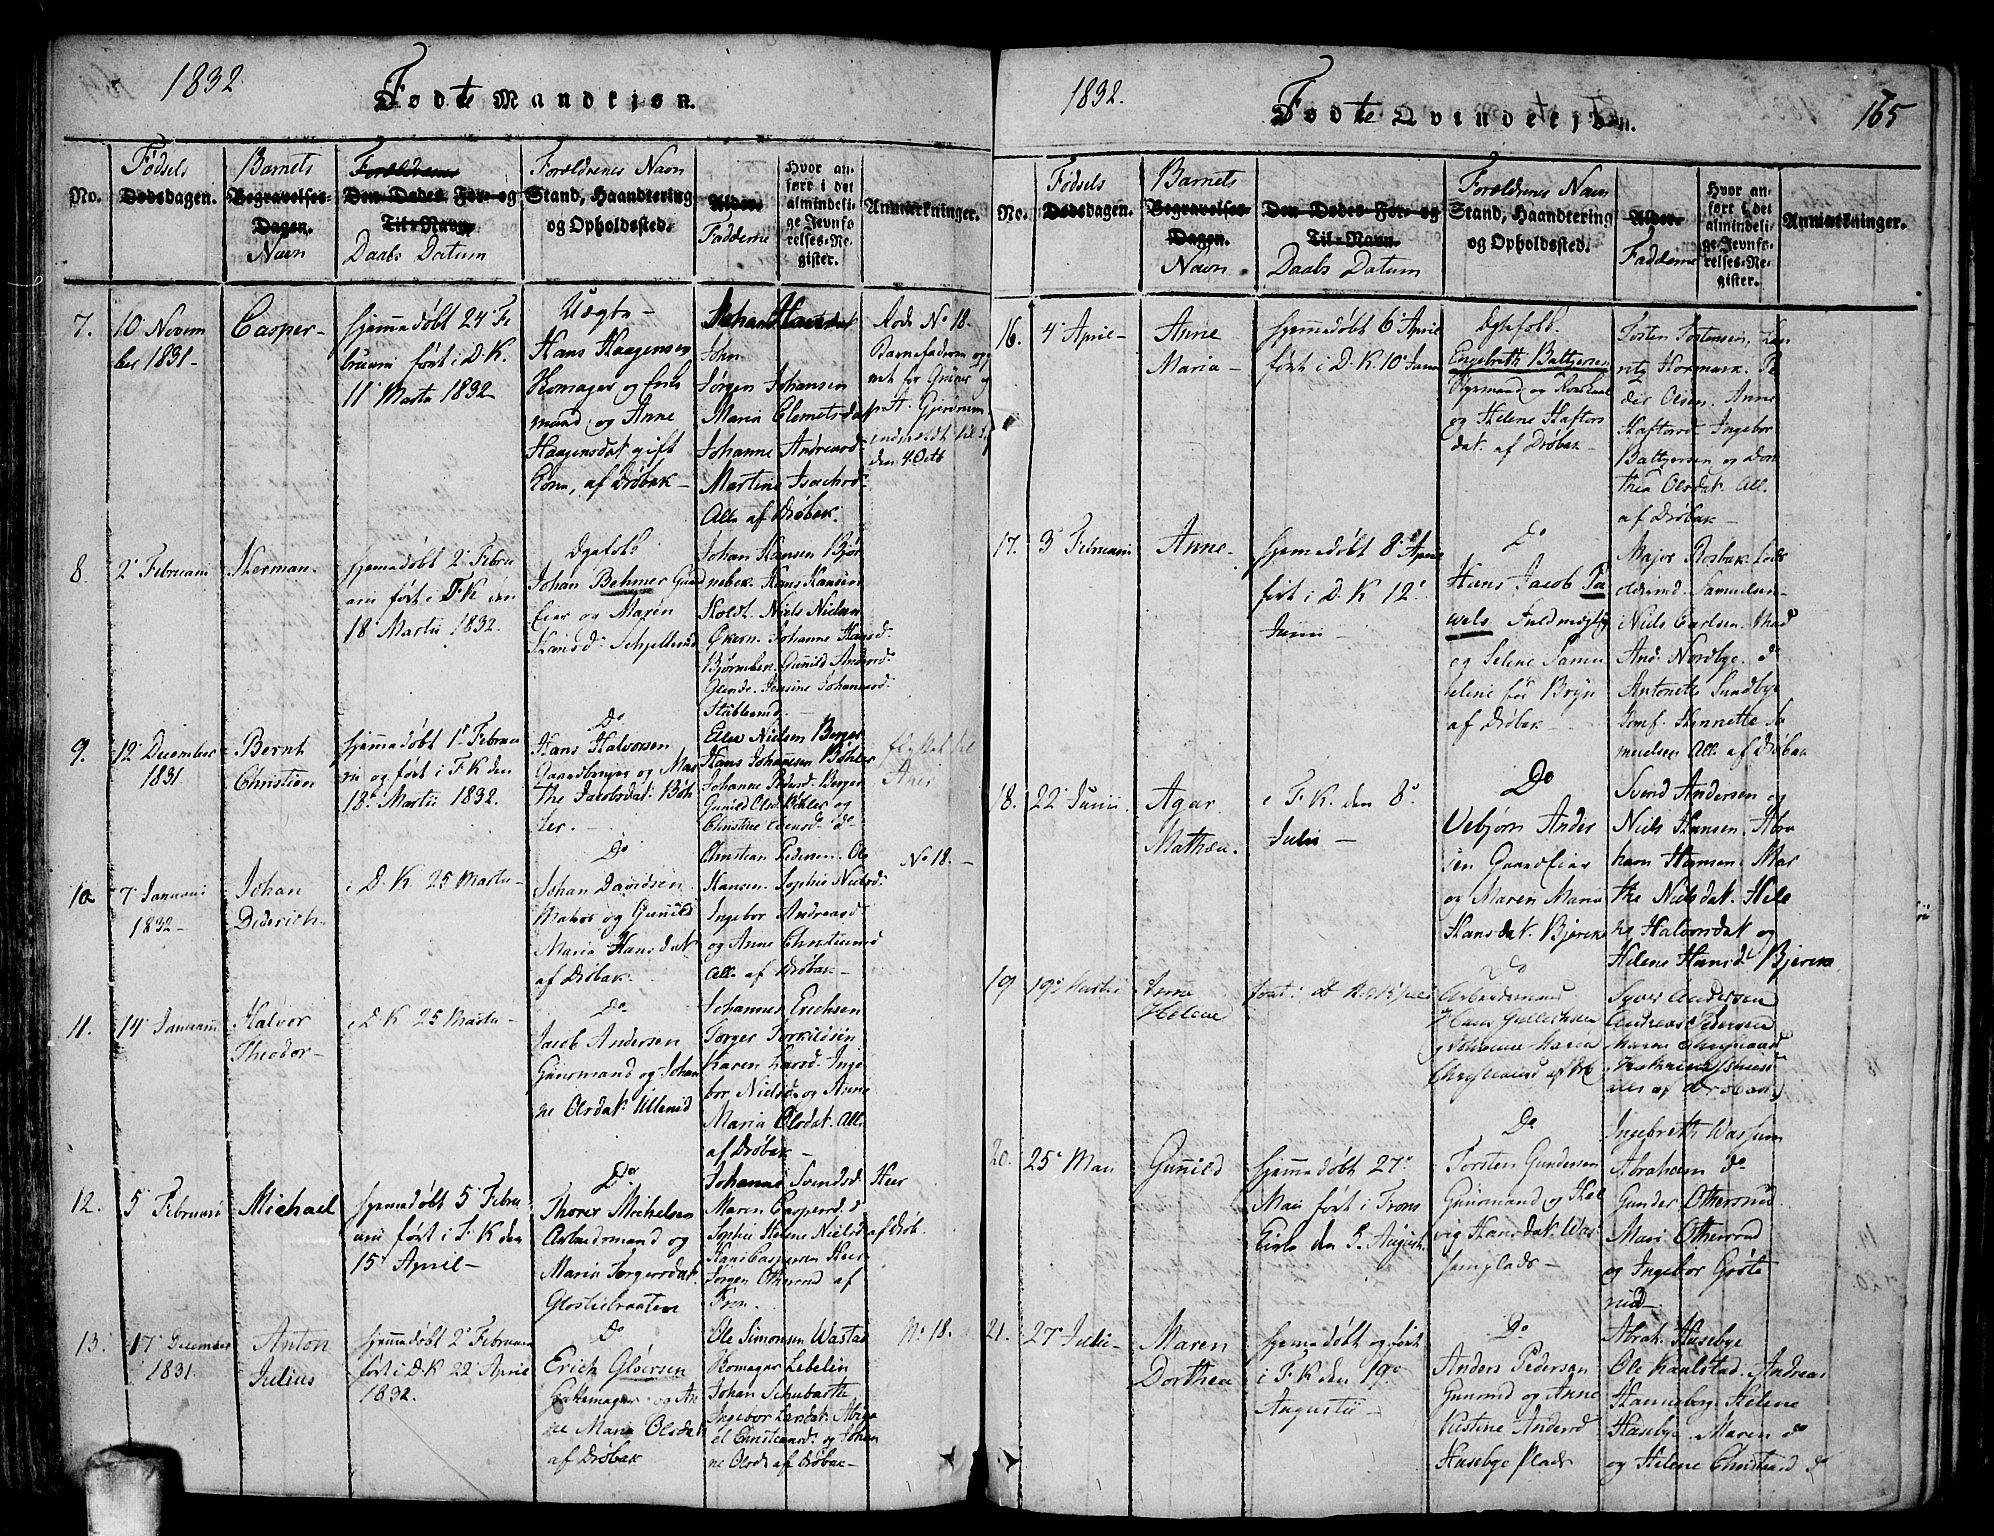 1832
Fødte Mandkjøn.
No.
Fødsels
Dødsdagen.
Barnets
Begravelses-
Dagen.
Navn
Forældrenes
Den Dødes For- og
Til-Navn
Daabs Datum
Forældrenes Navn
Stand, Haandtering
og Opholdssted.
Alder.
Fadderne
Hvor an-
ført i det
almindeli-
ge Jevnfø-
relses-Re-
gister.
Anmærkninger.
7.
10 Novem
ber 1831-
Casper-
hjemmedøbt 24 Fe
bruarii ført i D.K.
11 Martii 1832
Uægte-
Hans Haagensen
og
mand, og Anne
Haagensdat gift
Kone, af Drøbak-
Johan
Jørgen Johansen
Maria Clemetsdat
Johanne Andreasd.
Martine Isachsd.
Alle af Drøbak.
No 18.
Barnefaderen
8.
2 Februarii
Herman.
hjemmedøbt 2 Febru
arii ført i F.K. den
18 Martii 1832.
Ægtefolk
Johan Behmer Gaard
eier og Maren
Hansd. Schjellerud
Johan Hansen Bjør
nebek. Hans Hansen
Skoldt. Niels Nielsen
Økern. Johanne Hansd.
Bjørnebek. Gunild Andersd.
Jensine Johannesd.
9.
12 December
1831
Bernt
Christian
hjemmedøbt 1 Februa
rii og ført i F.K. den
18 Martii 1832.
Do
Hans Halvorsen
Gaardbruger og Mar
the Jacobsdat. Bøh
ler.-
Nielsen Berger
Hans Johansen Bøhler
Johanne Pedersd. Berger
Gunild Olsd. Bøhler og
Christine do
flyttet til
10
7 Januarii
1832-
Johan
Diderich-
i D.K. 25 Martii-
Do
Johan Davidsen
Matros og Gunild
Maria Hansdat
af Drøbak.
Christian Pedersen. Ole
Hansen. Sophie Nielsd.
Ingebor Andreasd
og Anne Christiansd
Alle af Drøbak-
No 18.-
11.
14 Januarii
Halvor
Theodor-
i D.K. 25 Martii-
Do
Jacob Andersen
Huusmand og Johan
ne Olsdat. Ullerud
Johannes Erichsen
Torger Torkildsen
Karen Larsd. Inge
bor Nielsd. og Anne
Maria Olsdat. Alle
af Drøbak-
12.
5 Februarii
Michael
hjemmedøbt 5 Febru
arii ført i F.K. den
15 April-
Do
Thorer Michelsen
Arbeidsmand og
Maria Torgersdat.
Glostiebraaten
Johanne Svendsd. Heer
Maren Caspersd. do
Sophie Helene Nielsd. af Drøb.
Hans Caspersen Heer
Jørgen Ottersrud af
Fron.
13.
17 December
1831.
Anton
Julius
hjemmedøbt 2 Februarii
ført i D.K. 22 April
1832.
Do
Erich Gløersen
og An
ne Maria Olsdat
af Drøbak
Ole Simonsen Wastad
Lebelin
Johan Schubarth
Ingebor Larsdat. Abiga
el Christiansd. og Johan
ne Olsd. af Drøbak-
No 18.
1832.
165
Fødte Qvindekjøn.
No.
Fødsels
Dødsdagen.
Barnets
Begravelses
Dagen.
Navn
Den Dødes For- og
Til-Navn
Daabs Datum
Forældrenes Navn
Stand, Haandtering
og Opholdssted.
Alder.
Fadderne
Hvor an-
ført i det
almindeli-
ge Jevnfø-
relses-Re-
gister.
Anmærkninger.
16.
4 April-
Anne
Maria-
hjemmedøbt 6 April
ført i D.K. 10 Junii
Ægtefolk.
Engebreth Baltzersen
Styrmand og
og Helene Haftors
dat. af Drøbak-
Torsten Torstensen,
Hormark. Pe
der Olsen. Anne
Haftorsd. Ingebor
Baltzersen og Dor
thea Olsdat. Alle
af Drøbak-
17.
3 Februarii
Anne-
hjemmedøbt 8 April
ført i D.K. 12
Junii-
Do
Hans Jacob Pa
wels Fuldmægtig
og Helene Samu
eleine fød Bryn
af Drøbak-
Major
Samuelsen-
Niels Carlsen. Mad
And. Nordbye. do
Antonette Sundbye
Jomf. Hennette Sa
muelsen Alle af Drøbak
18.
22 Junii.
Agar
Mathea.
i F.K. den 8
Julii-
Do
Vebjørn Ander
sen Gaardeier
og Maren Maria
Hansdat. Bjerke
Svend Andersen og
Niels Hansen. Abra
ham Hansen. Mar
the Nielsdat. Hele
ne Halvorsdat og
Helene Hansd. Bjerke.
19
19 Martii
Anne
Helene
Do
Arbeidsmand
Hans
og Johanne Maria
Christiansd af Drø
Syver Andersen
Andreas Pedersen
alle af Drøbak
20.
25 Maii
Gunild
hjemmedøbt 27
Maii ført i Frons
Kirke den 5. August.
Do
Torsten Gundersen
Huusmand og Hel
vig Hansdat. Was
sumplads-
Ingebreth Wassum
Abraham do
Gunder Ottersrud
Mari Ottersrud
og Ingebor Grøte
rud-
21.
27 Julii-
Maren
Dorthea
hjemmedøbt og ført
i F.K. den 19
Augustii-
Do
Anders Pedersen
Huusmd og Anne
Kirstine Andersd
Husebye Plads
Abrah. Husebye
Ole Kaalstad. Andreas
Hanneborg. Helene
Husebye. Maren do
og Helene Christiansd do